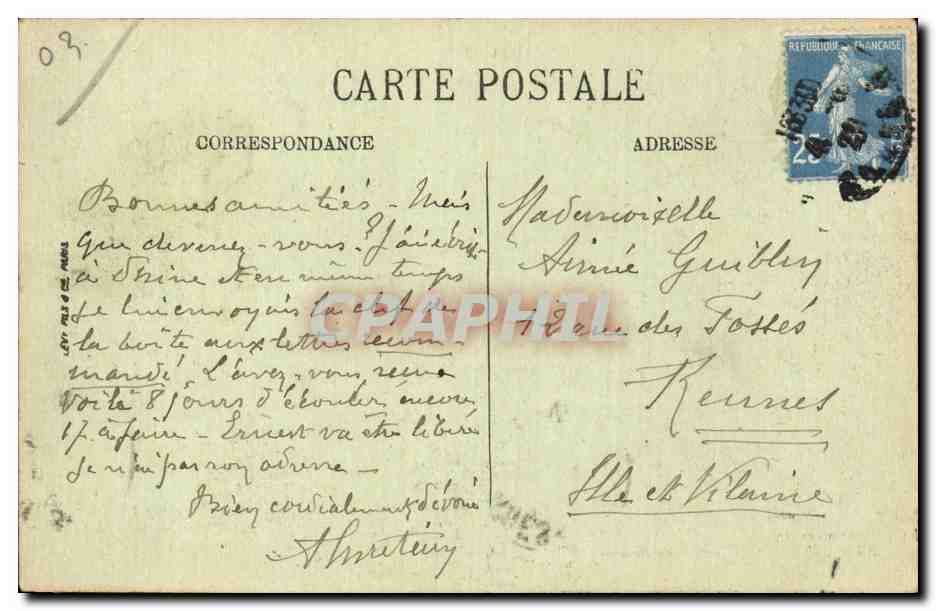 03.
CARTE POSTALE
REPUBLIQUE FRANCAISE
25
CORRESPONDANCE
ADRESSE
Bonnes amitiés - Mais
que devenez-vous? J'ai écrit
à et en même temps
je lui envoyais la clef de
la boîte aux lettres recom-
mandé. L'avez-vous
Voilà 8 jours d'écoulés, encore
17 à faire - Ernest va être libéré
je n'ai pas son adresse -
Bien cordialement dévoué
LEVY FILS & Cie PARIS
CPAPHIL
Mademoiselle
Aimée Guiblin
rue des Fossés
Rennes
Ille et Vilaine